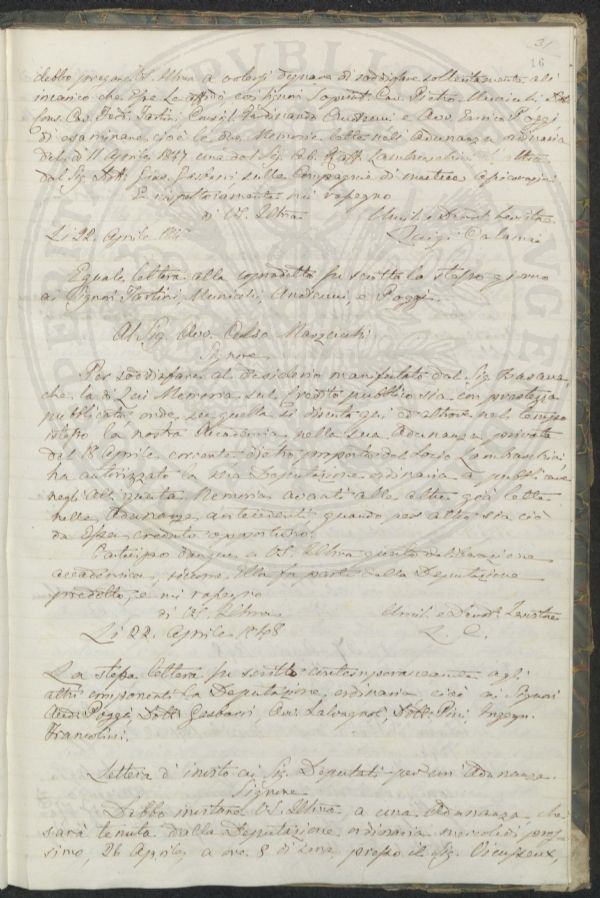 31
16
debbo pregare VS. Illma a volersi degnare di soddisfare sollecitamente all'
incarico che Esse Le affidò coi Signori Cav. Pietro Municchi, Dott.
Cav. Ferd. Tartini, Consigl. Ferdinando Andreucci e Avv. Enrico Poggi
di esaminare cioè le due Memorie lette nell'Adunanza ordinaria
del dì 11 Aprile 1847 una dal Sig. Cab. Raff. Lambruschini l'altra
dal Sig. Dott. Gasbarri sulla Compagnia di
E rispettosamente mi rassegno
di VS. Illma
Umil. e Devot. Servitore
Li 22. Aprile
Luigi Calamai
Eguale lettera alla sopradetta fu scritta lo stesso giorno
ai Signori Tartini, Municchi, Andreucci, e Poggi.
Al Sig. Avv. Celso Marzucchi
Signore
Per soddisfare al desiderio manifestato dal Sig.
che la di Lei Memoria sul Credito pubblico sia con prestezza
pubblicata onde su quella si discuta qui ed altrove nel tempo
istesso, la nostra Accademia nella sua Adunanza privata
del 18 Aprile corrente dietro proposta del Socio Lambruschini
ha autorizzato la sua Deputazione ordinaria a pubblicare
negli Atti questa Memoria avanti alle altre già lette
nelle Adunanze antecedenti quando per altro sia ciò
da Essa creduto opportuno.
Partecipo dunque a VS. Illma questa deliberazione
accademica, siccome Ella fa parte della Deputazione
predetta, e mi rassegno
di VS. Illma
Umil. e Devot. Servitore
Li 22. Aprile 1848
L. C.
La stessa lettera fu scritta contemporaneamente agli
altri componenti la Deputazione ordinaria cioè ai Signori
Poggi, Dott. Gasbarri, Avv. Salvagnoli, Dott. Pini, Ingegn.
Francolini.
Lettera d'invito ai Sig. Deputati per un'Adunanza.
Signore
Debbo invitare VS. Illma a una Adunanza che
sarà tenuta dalla Deputazione ordinaria mercoledì pros-
simo, 26 Aprile, a ore 8 di sera, presso il Sig. Vieusseux,